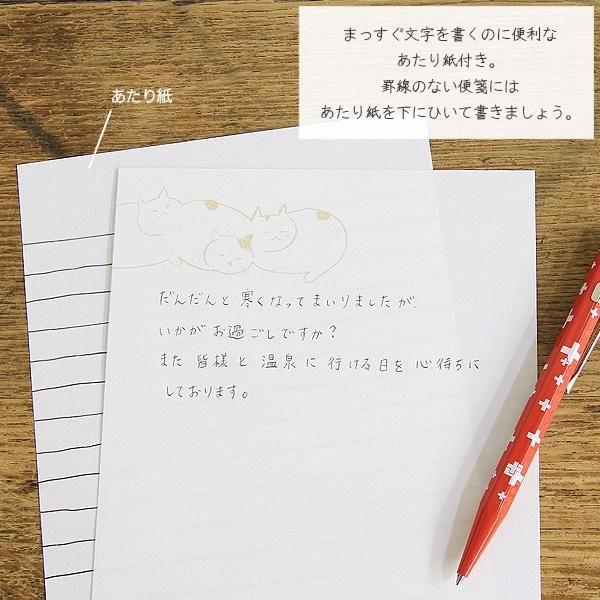 まっすぐ文字を書くのに便利な
あたり紙付き。
罫線のない便箋には
あたり紙を下にひいて書きましょう。
あたり紙
だんだんと寒くなってまいりましたが、
いかがお過ごしですか?
また皆様と温泉に行ける日を心待ちに
しております。